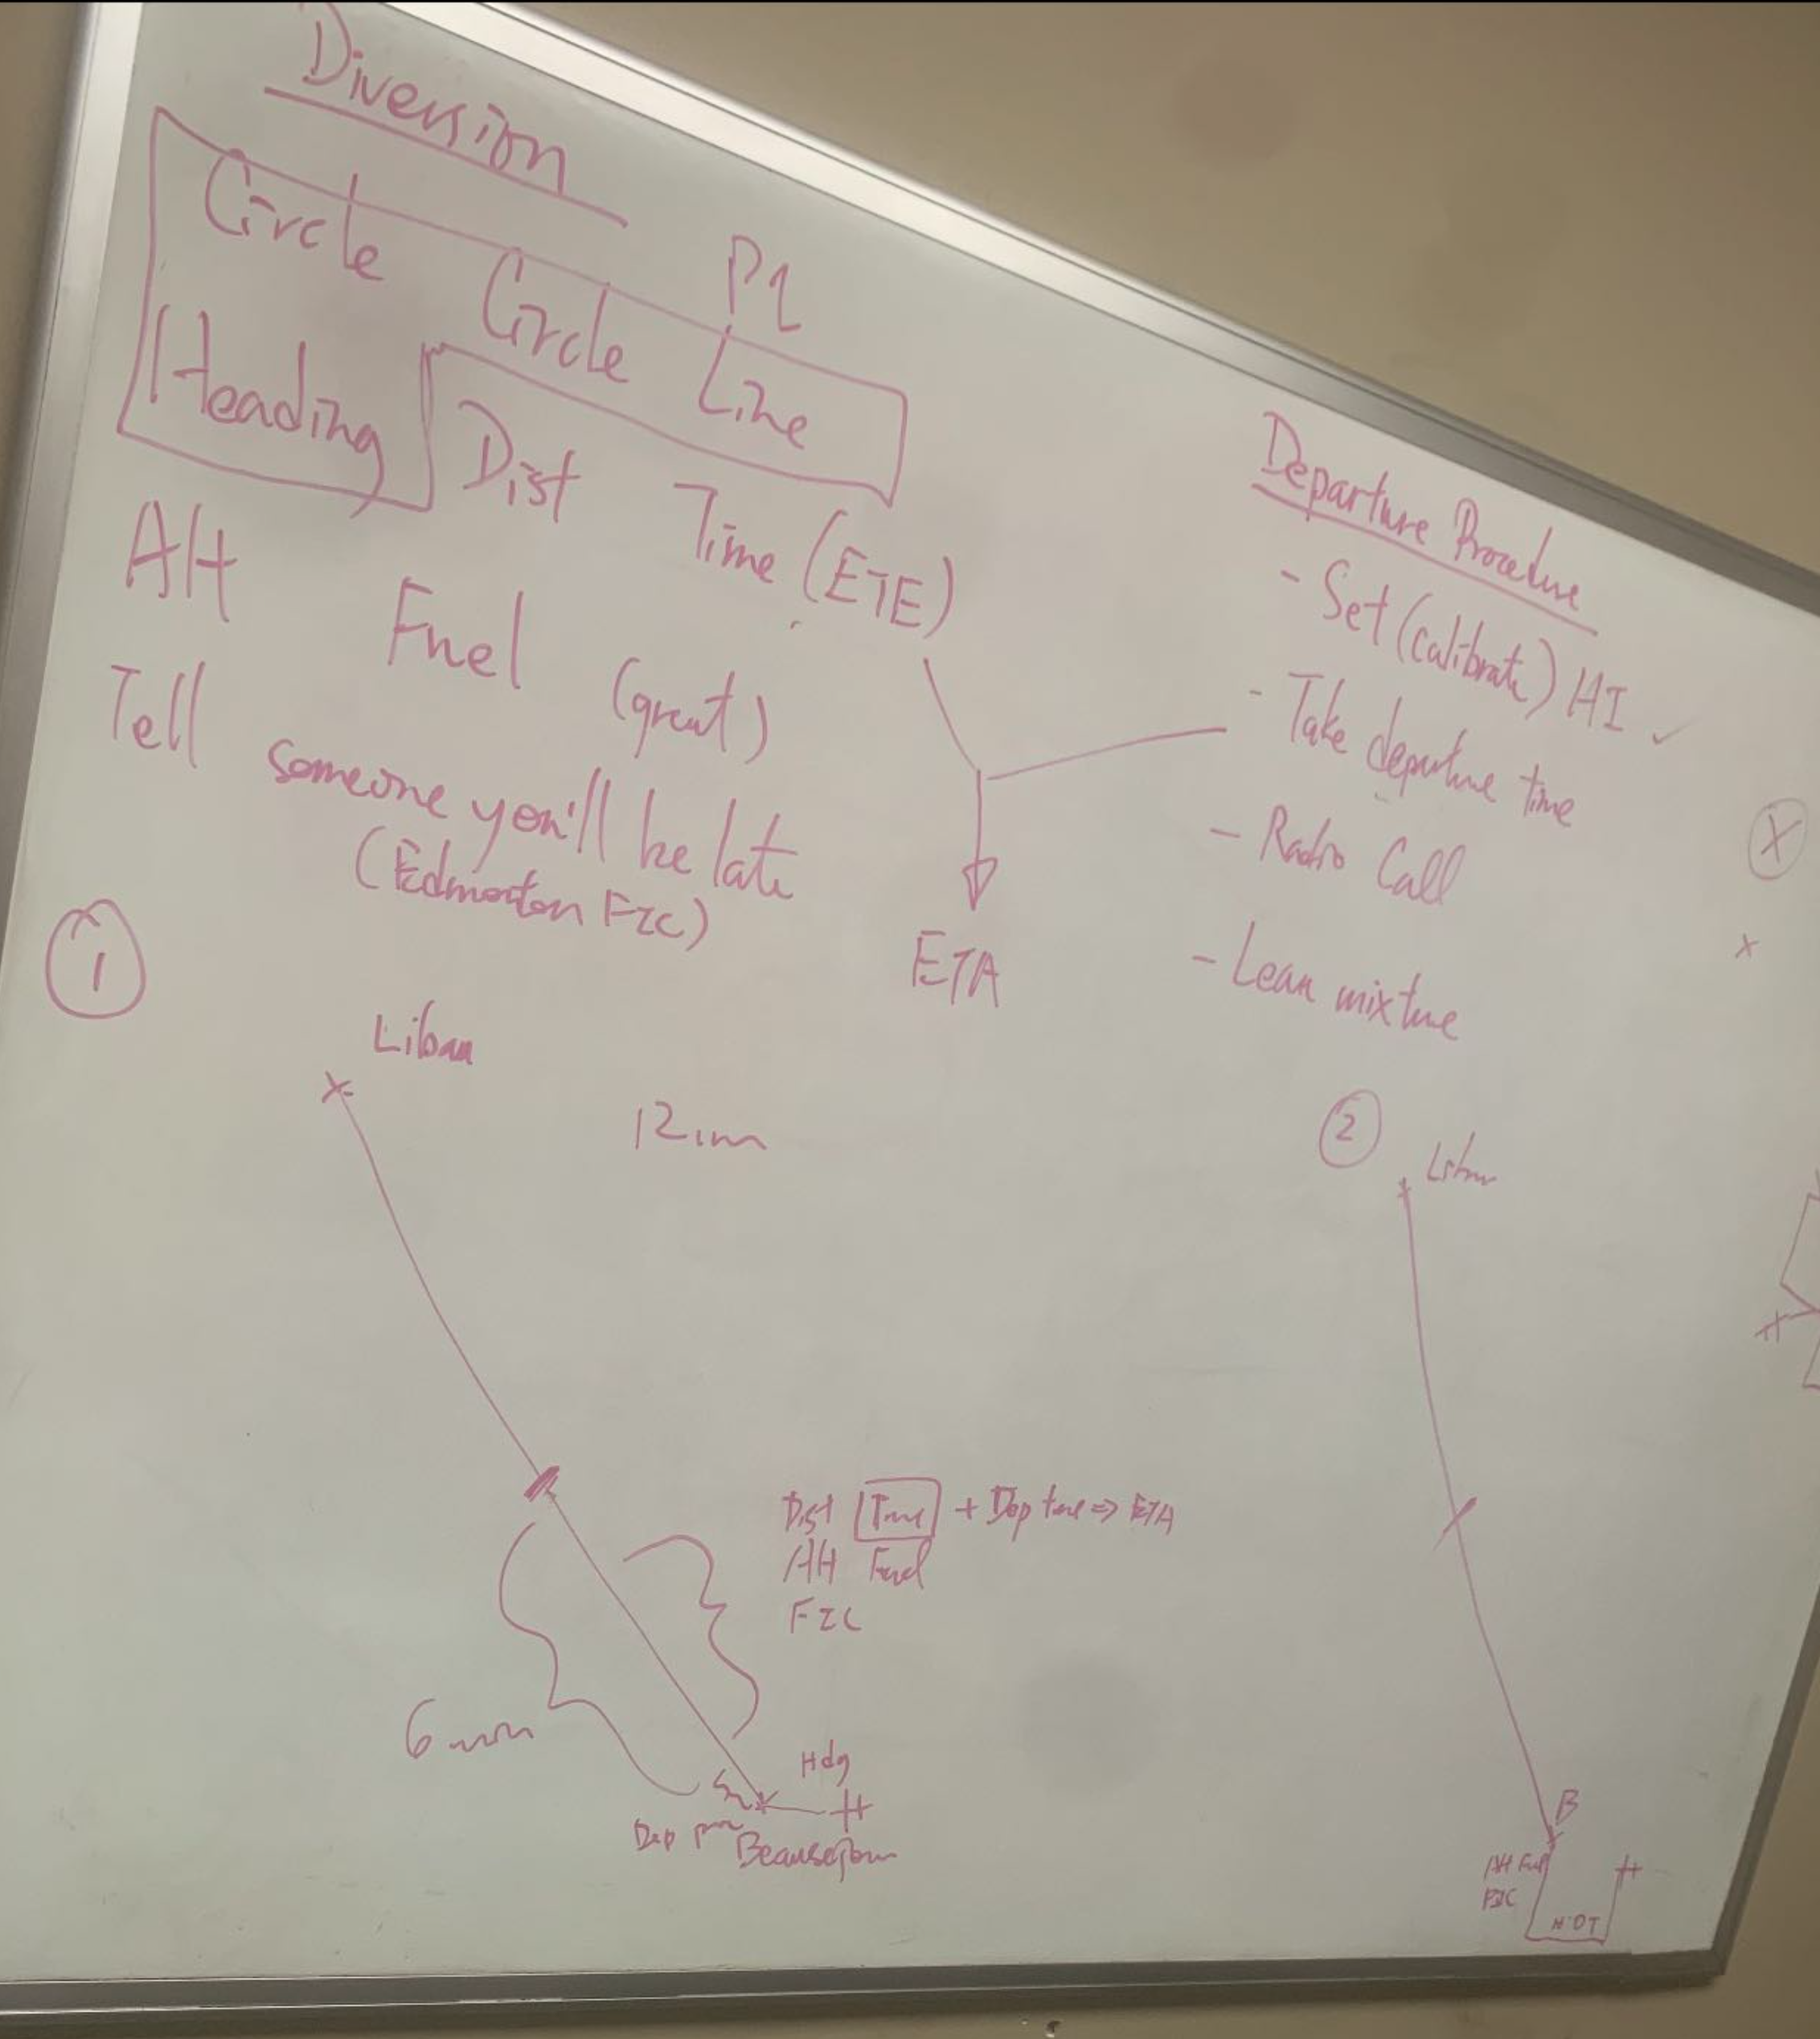 Diversion
Circle Circle Line
Heading Dist Time (ETE)
Alt Fuel (great)
Tell someone you'll be late
(Edmonton FIC)
ETA
Departure Procedure
- Set (calibrate) HI ✓
- Take departure time
- Radio Call
- Lean mixture
X
x
1
Libau
12nm
Dist Time + Dep time => ETA
Alt Fuel
FIC
6nm
Hdg
Dep
Beausejour
2
Libau
B
Alt Fuel
FIC
H DT